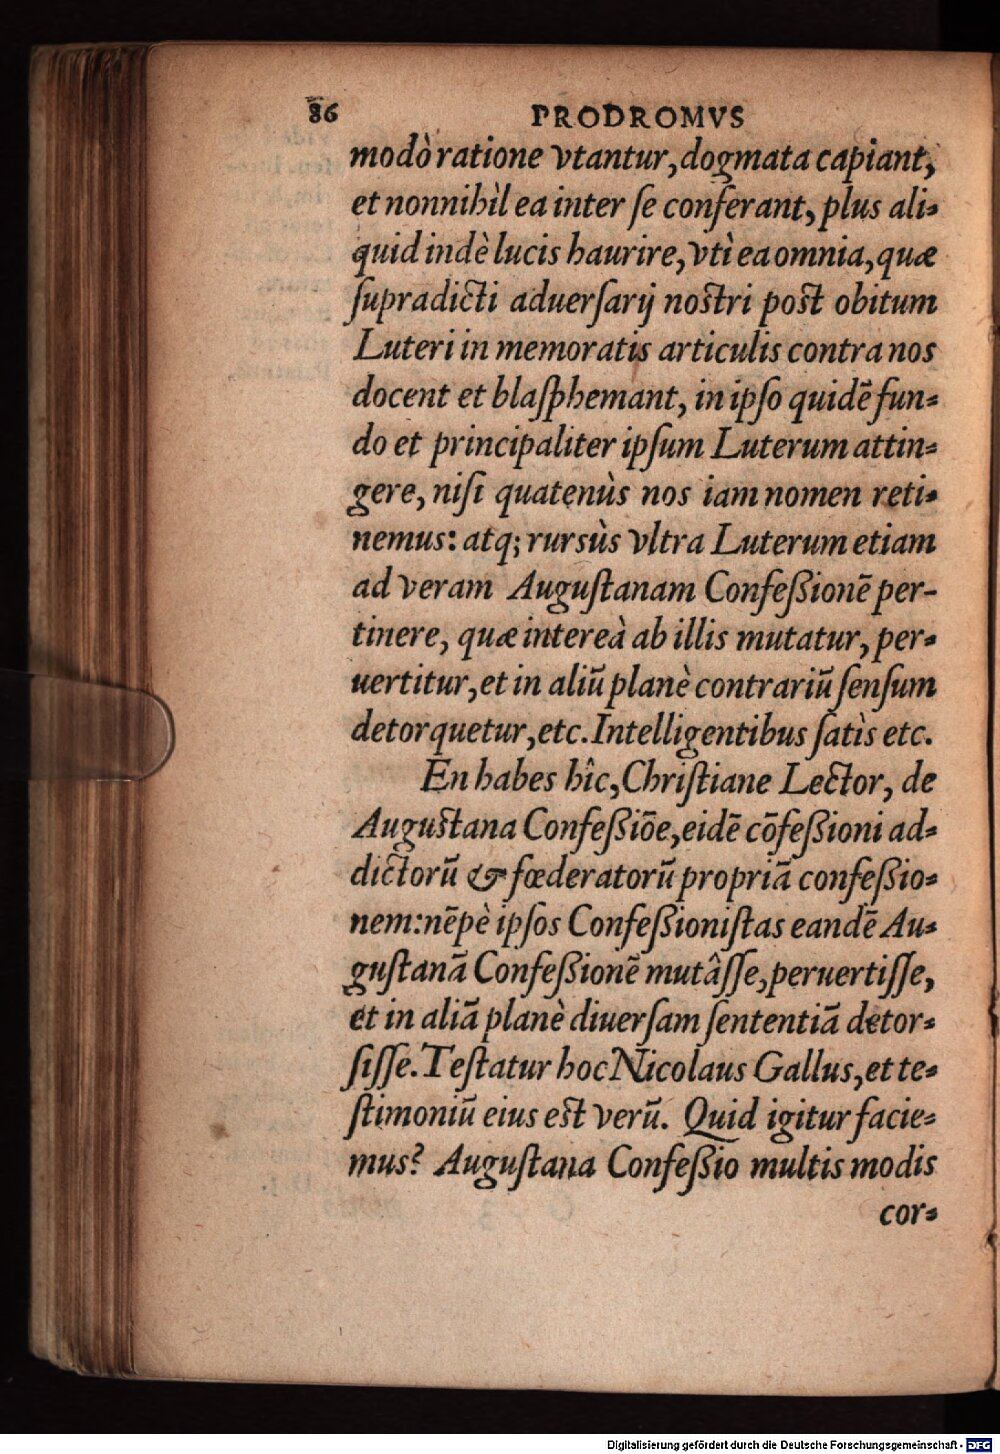 86 PRODROMVS
modò ratione vtantur, dogmata capiant,
et nonnihìl ea inter ſe conferant, plus ali-
quid indè lucis haurire, vtì ea omnia, quæ
ſupradicti aduerſarij noſtri poſt obitum
Luteri in memoratis articulis contra nos
docent et blaſphemant, in ipſo quidē fun-
do et principaliter ipſum Luterum attin-
gere, niſi quatenùs nos iam nomen reti-
nemus: atq; rursùs vltra Luterum etiam
ad veram Auguſtanam Confeßionē per-
tinere, quæ intereà ab illis mutatur, per-
uertitur, et in aliū planè contrariū ſenſum
detorquetur, etc. Intelligentibus ſatìs etc.
En habes hîc, Chriſtiane Lector, de
Auguſtana Confeßiōe, eidē cōfeßioni ad-
dictorū & fœderatorū propriā confeßio-
nem: nēpè ipſos Confeßioniſtas eandē Au-
guſtanā Confeßionē mutâſſe, peruertiſſe,
et in aliā planè diuerſam ſententiā detor-
ſiſſe. Teſtatur hoc Nicolaus Gallus, et te-
ſtimoniū eius eſt verū. Quid igitur facie-
mus? Auguſtana Confeßio multis modis
cor-
Digitalisierung gefördert durch die Deutsche Forschungsgemeinschaft - DFG